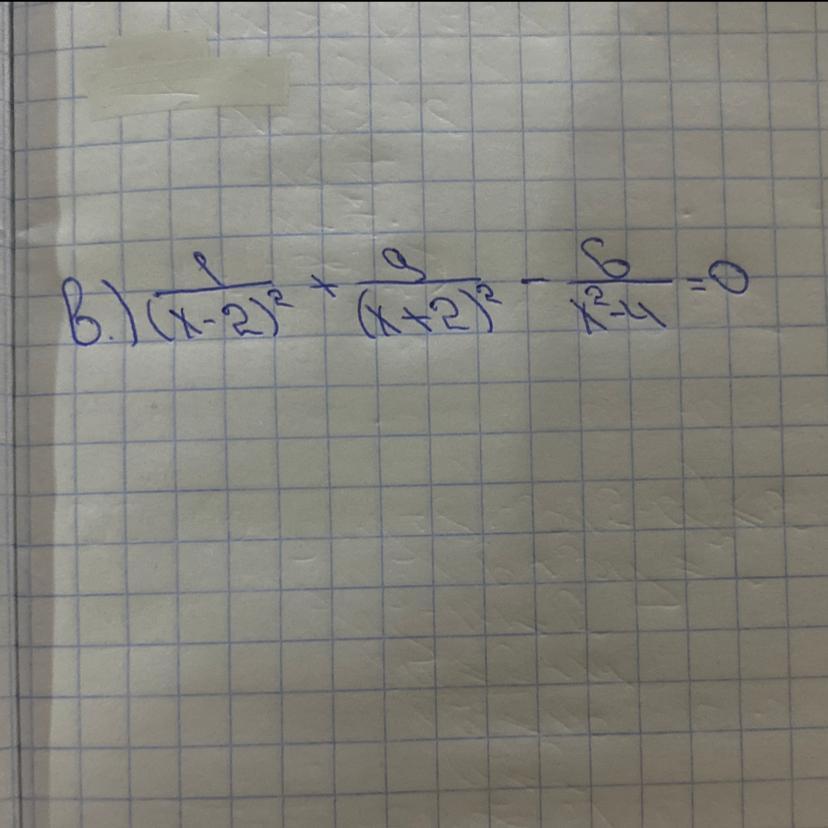 в.) 1/(x-2)² + 9/(x+2)² - 6/(x²-4) = 0